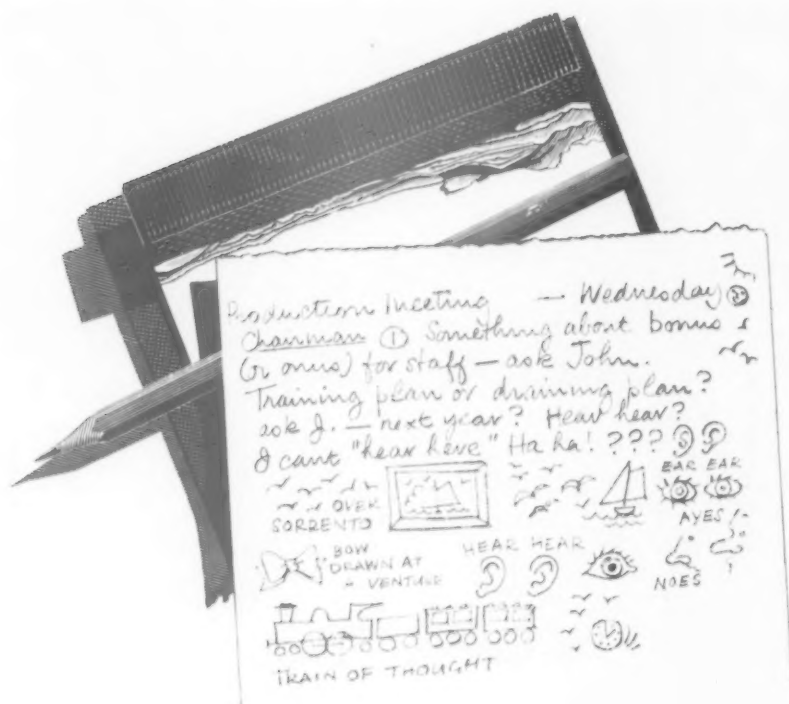 Production Meeting — Wednesday
Chairman ① Something about bonus
(or onus) for staff — ask John.
Training plan or draining plan?
ask J. — next year? Hear hear?
I cant "hear here" Ha ha! ???
EAR EAR
OVER
SORRENTO
AYES!
BOW
DRAWN AT
A VENTURE
HEAR HEAR
NOES!
TRAIN OF THOUGHT